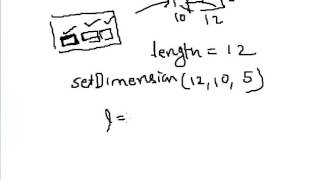 10 12
length = 12
setDimension(12, 10, 5)
l =